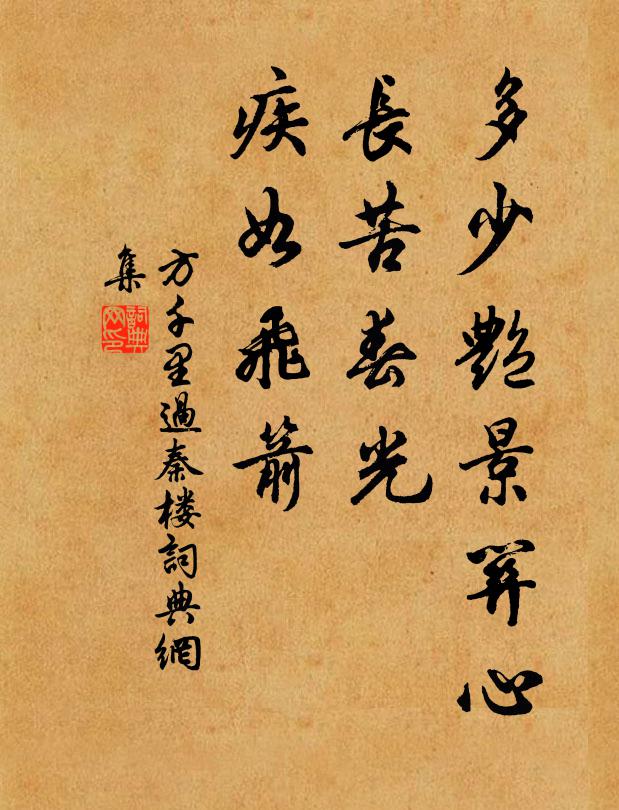 多少艷景関心
長苦春光
疾如飛箭
方千里過秦楼詞典網
集
詞典网印